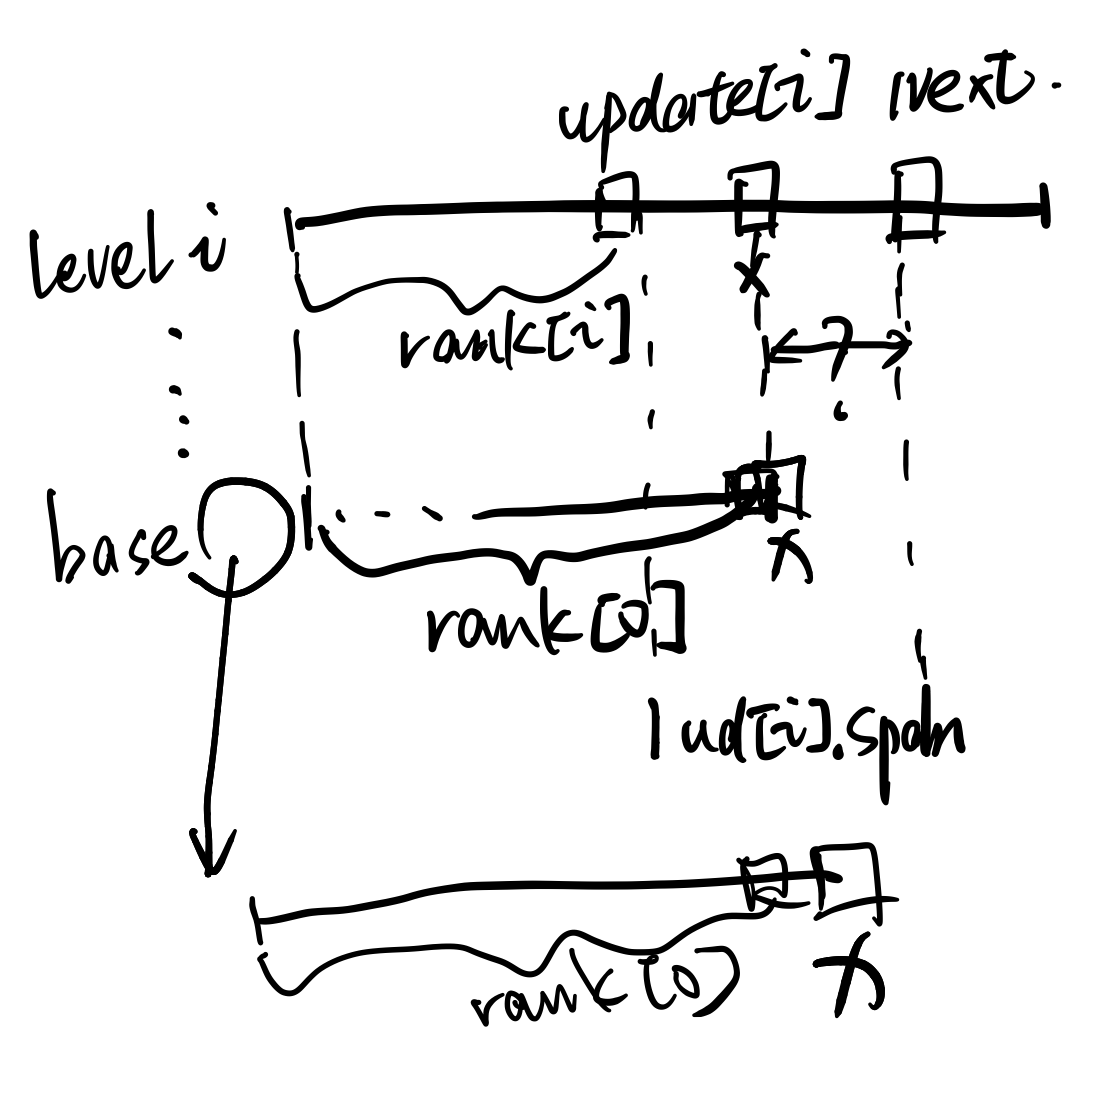 update[i] next.
level i
x
rank[i]
?
base
x
rank[0]
ud[i].span
rank[0]
x